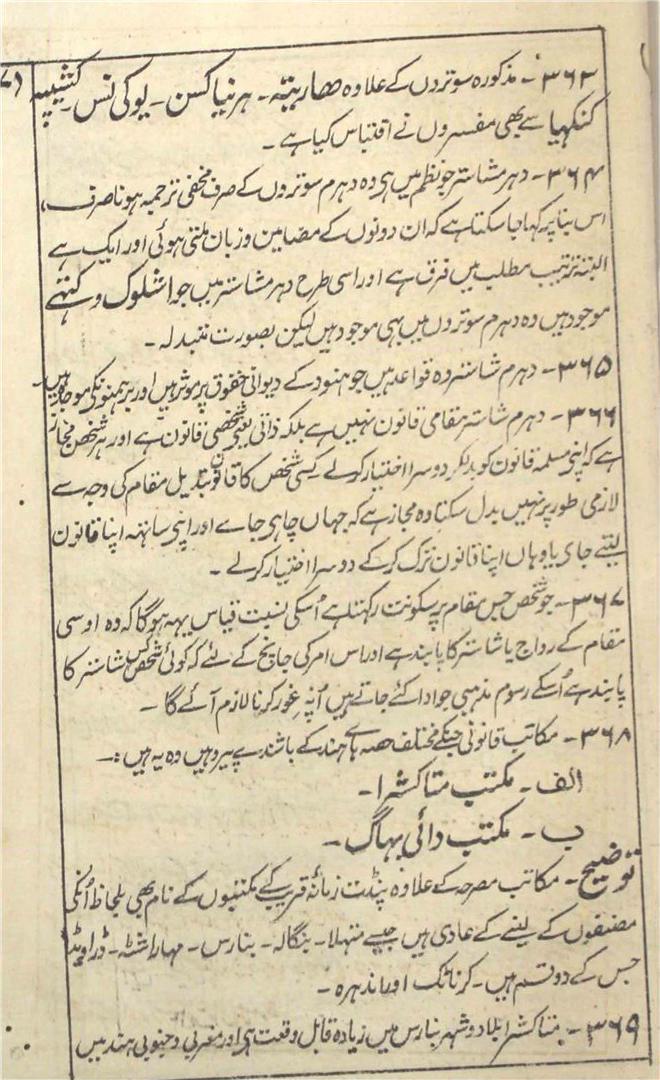 ۳۶۳- مذکورہ سوتروں کے علاوہ ھاریتہ۔ ہرنیاکسن۔ یوکی نس۔ کشیپہ
کنکھیا سے بھی مفسروں نے اقتباس کیا ہے۔
۳۶۴- دہرم شاستر جو نظم میں ہی وہ دہرم سوتروں کے صرف مخفی ترجمہ ہونا صرف
اس بنا پر کہا جا سکتا ہے کہ ان دونوں کے مضامین و زبان ملتی ہوئی اور ایک ہے
البتہ ترتیب مطلب میں فرق ہے اور اسی طرح دہرم شاستر میں جو اشلوک و کہتے
موجود ہیں وہ دہرم سوتروں میں بہی موجود ہیں لیکن بصورت متبدلہ۔
۳۶۵- دہرم شاستر وہ قواعد ہیں جو ہنود کے دیوانی حقوق پر موثر ہیں اور برہمنونکی موجد ہیں۔
۳۶۶- دہرم شاستر مقامی قانون نہیں ہے بلکہ ذاتی یعنی شخصی قانون ہے اور ہر شخص مجاز
ہے کہ اپنی مسلمہ قانون کو بدلکر دوسرا اختیار کر لے کسی شخص کا قانون تبدیل مقام کی وجہ سے
لازمی طور پر نہیں بدل سکتا وہ مجاز ہے کہ جہاں چاہی جاے اور اپنی ساتہہ اپنا قانون
لیتے جای یا وہاں اپنا قانون ترک کر کے دوسرا اختیار کر لے۔
۳۶۷- جو شخص جس مقام پر سکونت رکہتا ہے اُسکی نسبت قیاس یہہ ہو گا کہ وہ اوسی
مقام کے رواج یا شاستر کا پابند ہے اور اس امر کی جانچ کے لئے کہ کوئی شخص کس شاستر کا
پابند ہے اُسکے رسوم مذہبی جو ادا کئے جاتے ہیں اُنپہ غور کرنا لازم آئے گا۔
۳۶۸- مکاتب قانونی جنکے مختلف حصہ ہاے ہند کے باشندے پیرو ہیں وہ یہ ہیں :۔
الف۔ مکتب متاکشرا۔
ب۔ مکتب دائی بہاگ۔
توضیح۔ مکاتب مصرحہ کے علاوہ پنڈت زمانۂ قریب کے مکتبوں کے نام بھی بلحاظ اُنکی
مصنفوں کے لینے کے عادی ہیں جیسے متہلا۔ بنگالہ۔ بنارس۔ مہاراشٹہ۔ ڈراویڈ
جس کے دو قسم ہیں۔ کرناٹک اور اندہرہ۔
۳۶۹- متاکشرا بلاد و شہر بنارس میں زیادہ قابل وقعت ہی اور مغربی و جنوبی ہند میں